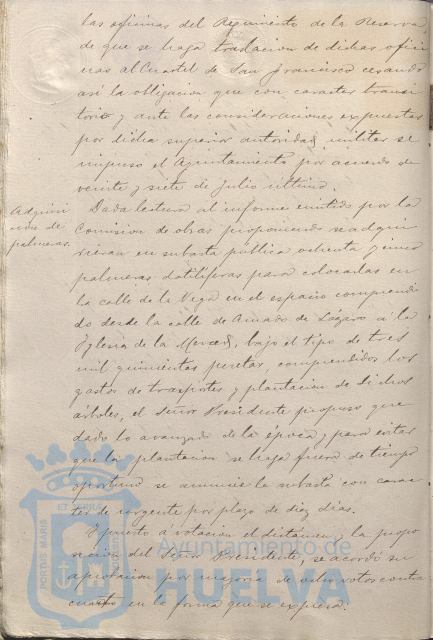 las oficinas del Regimiento de la Reserva,
de que se haga traslacion de dichas ofici
nas al Cuartel de San Francisco cesando
así la obligacion que con caracter transi
torio y ante las consideraciones expuestas
por dicha superior autoridad militar se
impuso el Ayuntamiento por acuerdo de
veinte y siete de Julio ultimo.
Adquisi
cion de
palmeras.
Dada lectura al informe emitido por la
Comision de obras proponiendo se adqui
rieran en subasta pública ochenta y cinco
palmeras datilíferas para colocarlas en
la calle de la Vega en el espacio comprendi
do desde la calle de Amado de Lázaro á la
Iglesia de la Merced, bajo el tipo de tres
mil quinientas pesetas, comprendidos los
gastos de trasportes y plantacion de dichos
árboles, el Señor Presidente propuso que
dado lo avanzado de la época y para evitar
que la plantacion se haga fuera de tiempo
oportuno se anuncie la subasta con carac
ter de urgente por plazo de diez dias.
Y puesto á votacion el dictamen y la propo
sicion del Señor Presidente, se acordó su
aprobacion por mayoria de ocho votos contra
cuatro en la forma que se expresa:
PORTUS MARIS
ET
Ayuntamiento de
HUELVA